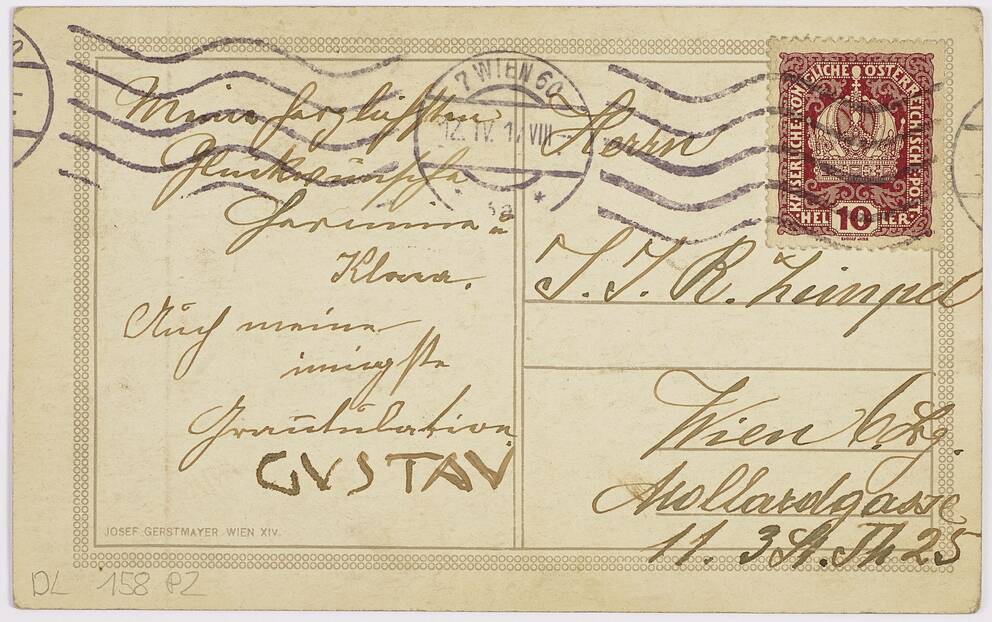 Meine herzlichsten
Glückwünsche
Hermine &
Klara.
Auch meine
innigste
Grautulation
GVSTAV
JOSEF GERSTMAYER WIEN XIV.
DL 158 PZ
7 WIEN 60
12. IV. 17 VIII
KAISERLICHE KÖNIGLICHE ÖSTERREICHISCHE POST
HELLER
10
Herrn
J. J. R. Zimpel
Wien
Mollardgasse
11. 3 St. Th 25